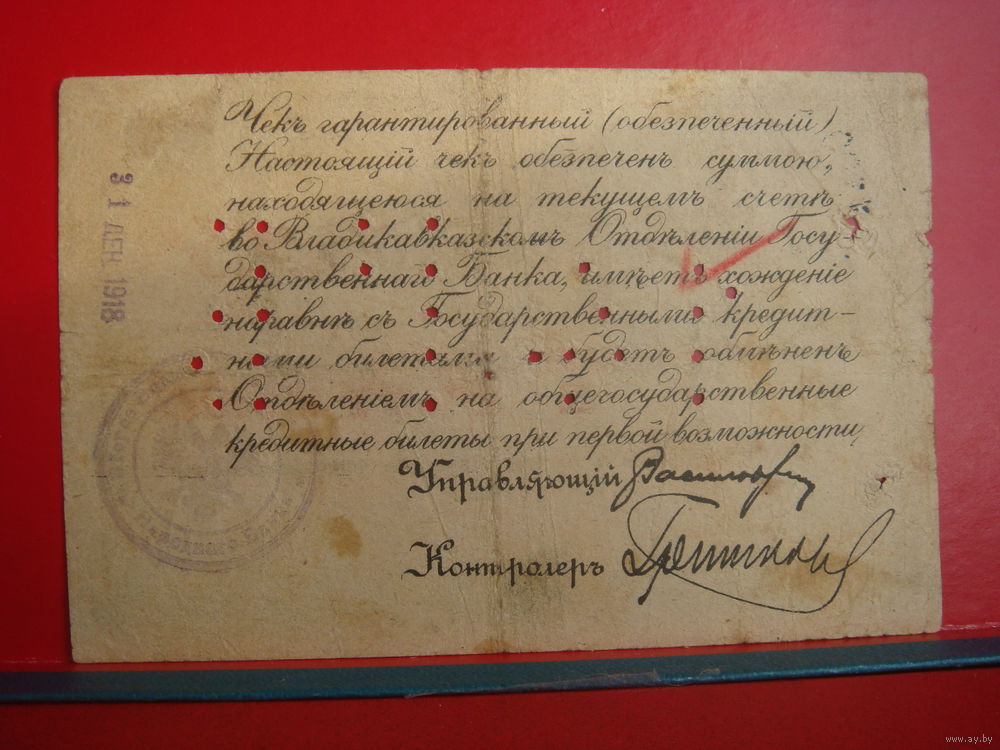 Чекъ гарантированный (обезпеченный)
Настоящій чекъ обезпеченъ суммою,
находящеюся на текущемъ счетѣ
во Владикавказскомъ Отдѣленіи Госу-
дарственнаго Банка, имѣетъ хожденіе
наравнѣ съ Государственными кредит-
ными билетами и будетъ обмѣненъ
Отдѣленіемъ на общегосударственные
кредитные билеты при первой возможности.
Управляющій
Контролеръ
31 ДЕК. 1918
www.ay.by